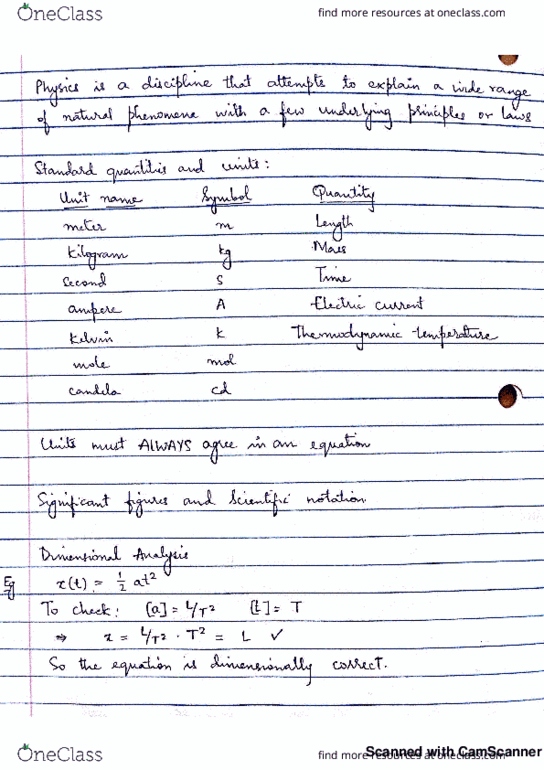 OneClass find more resources at oneclass.com
Physics is a discipline that attempts to explain a wide range
of natural phenomena with a few underlying principles or laws
Standard quantities and units:
Unit name Symbol Quantity
meter m Length
kilogram kg Mass
second s Time
ampere A Electric current
Kelvin K Thermodynamic temperature
mole mol
candela cd
Units must ALWAYS agree in an equation
Significant figures and Scientific notation.
Dimensional Analysis
Eg x(t) = 1/2 at²
To check: [a] = L/T² [t] = T
⇒ x = L/T² · T² = L ✓
So the equation is dimensionally correct.
OneClass find more resources at oneclass.com
Scanned with CamScanner